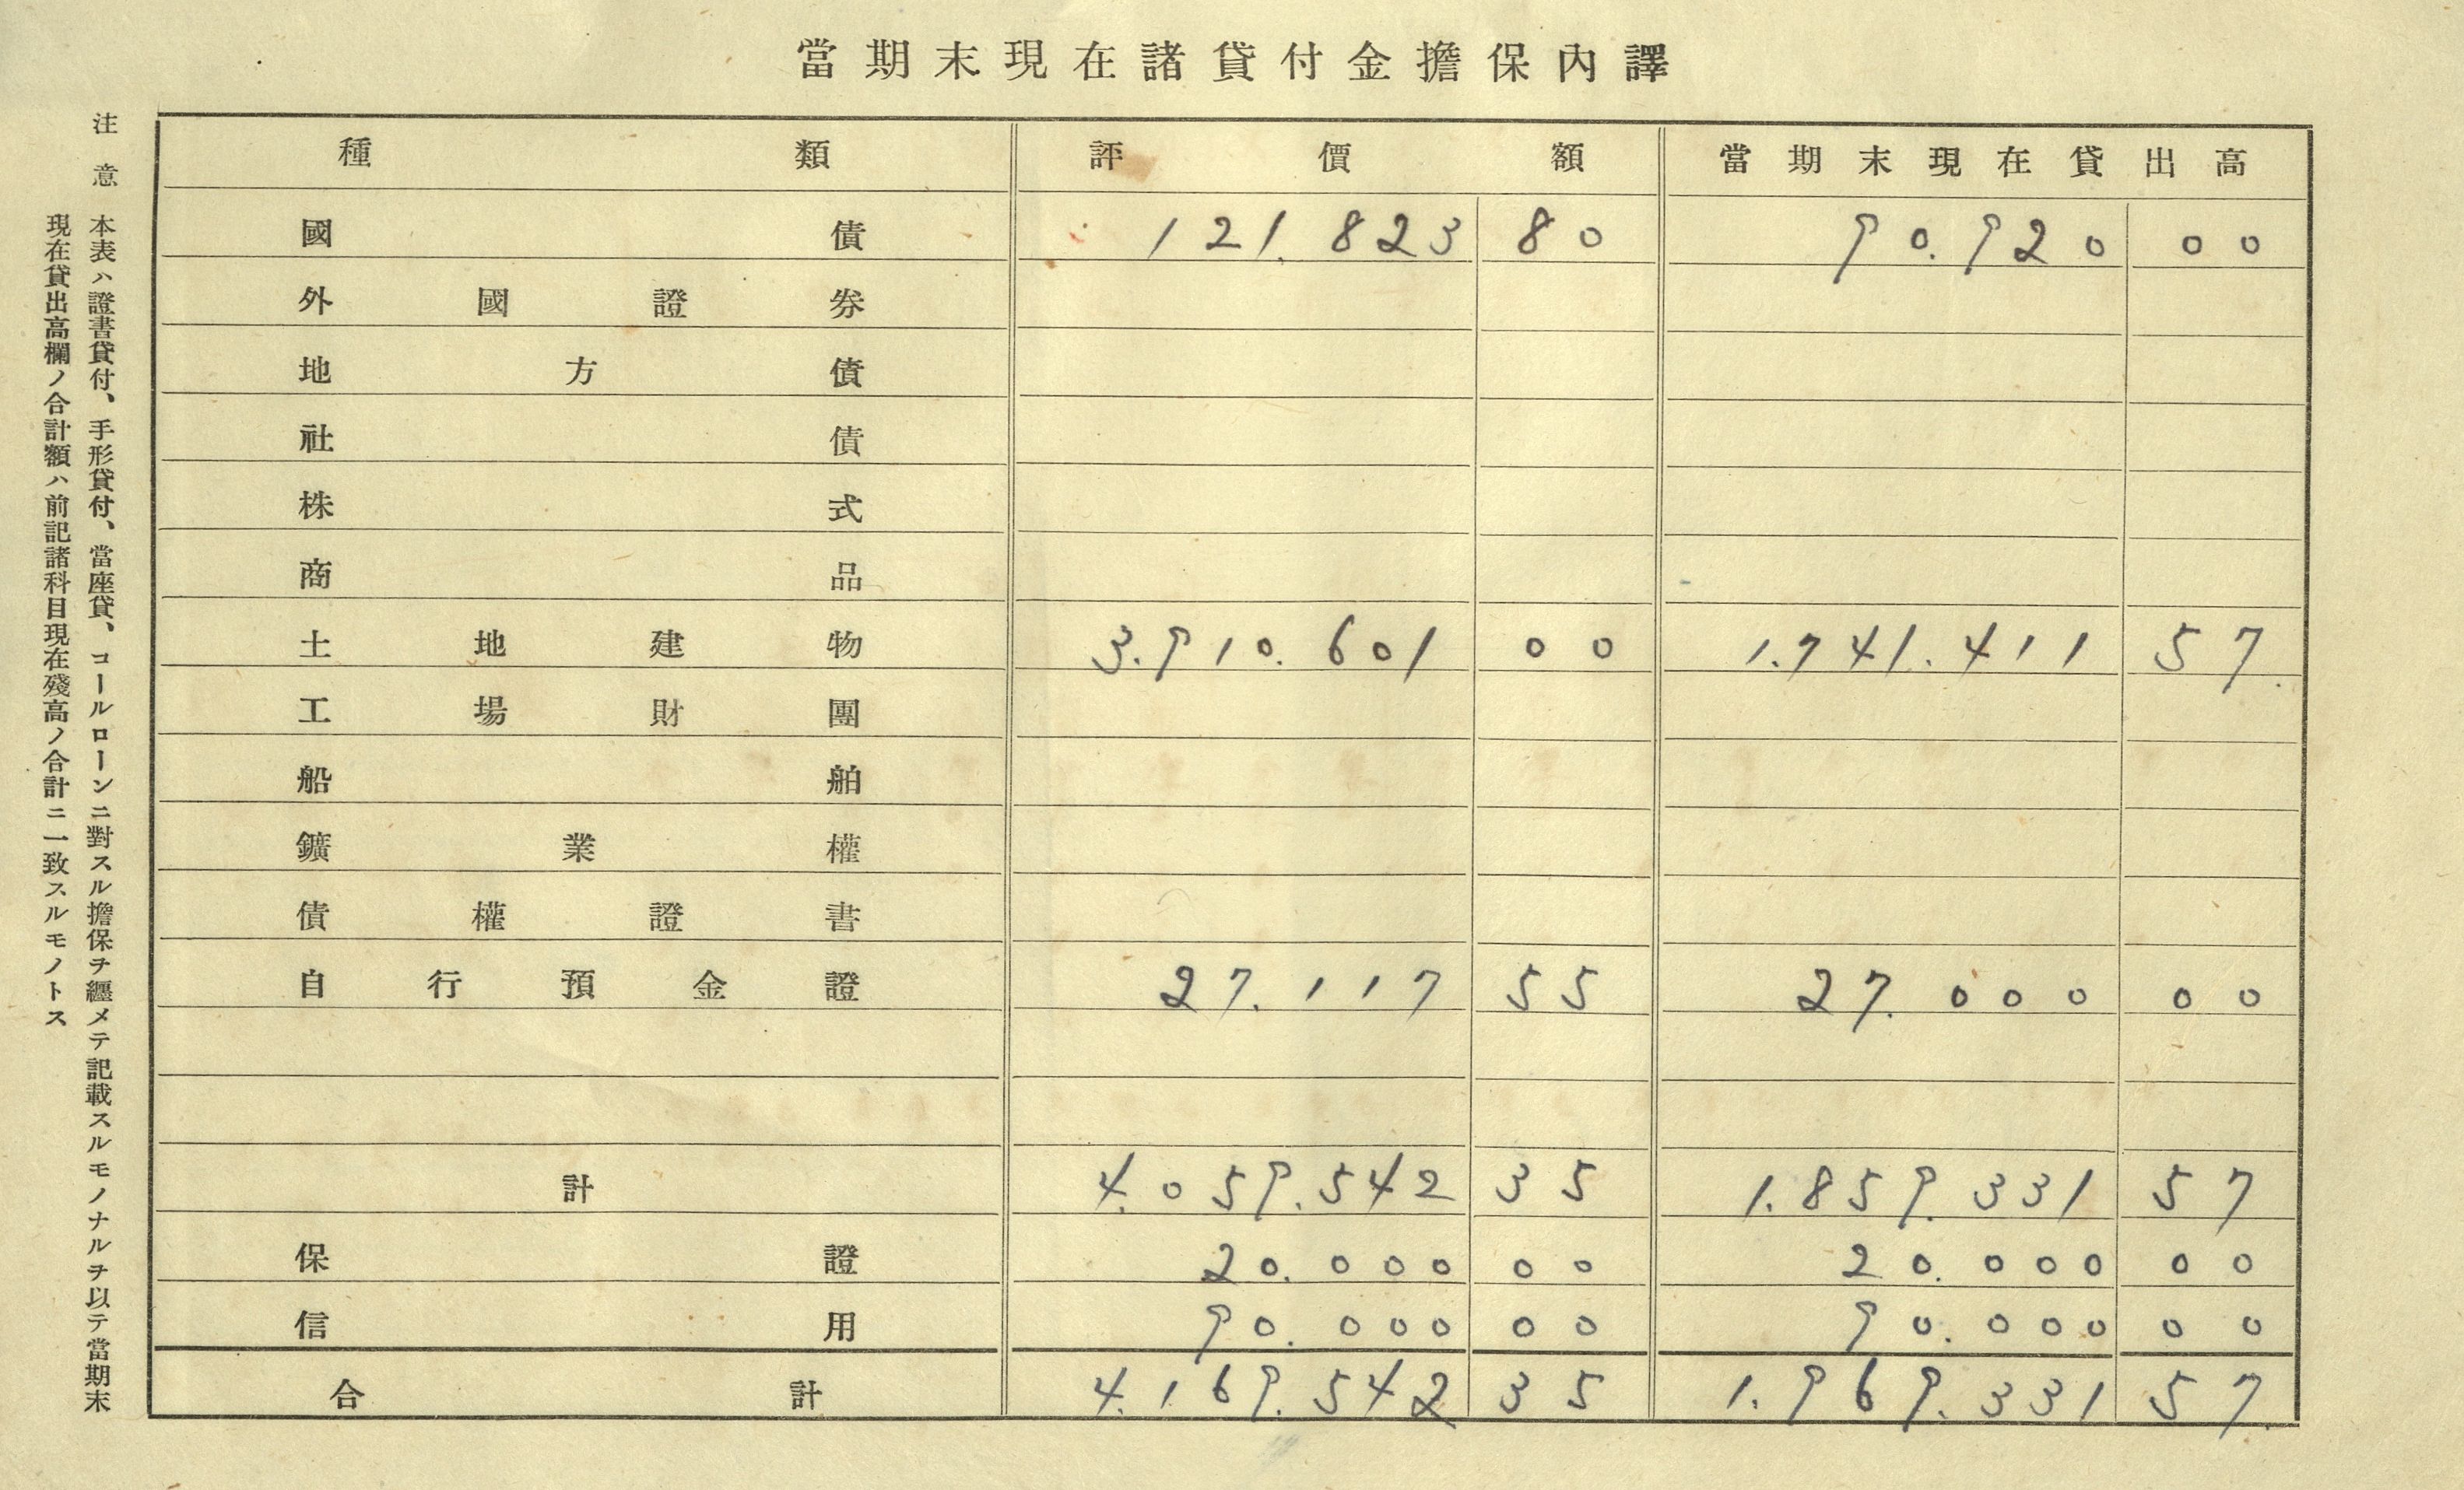 當期末現在諸貸付金擔保內譯
種類 評價額 當期末現在貸出高
國債 121.823 80 90.920 00
外國證券
地方債
社債
株式
商品
土地建物 3.910.601 00 1.741.411 57
工場財團
船舶
鑛業權
債權證書
自行預金證 27.117 55 27.000 00
計 4.059.542 35 1.859.331 57
保證 20.000 00 20.000 00
信用 90.000 00 90.000 00
合計 4.169.542 35 1.969.331 57
注意 本表ハ證書貸付、手形貸付、當座貸、コールローンニ對スル擔保ヲ纒メテ記載スルモノナルヲ以テ當期末
現在貸出高欄ノ合計額ハ前記諸科目現在殘高ノ合計ニ一致スルモノトス